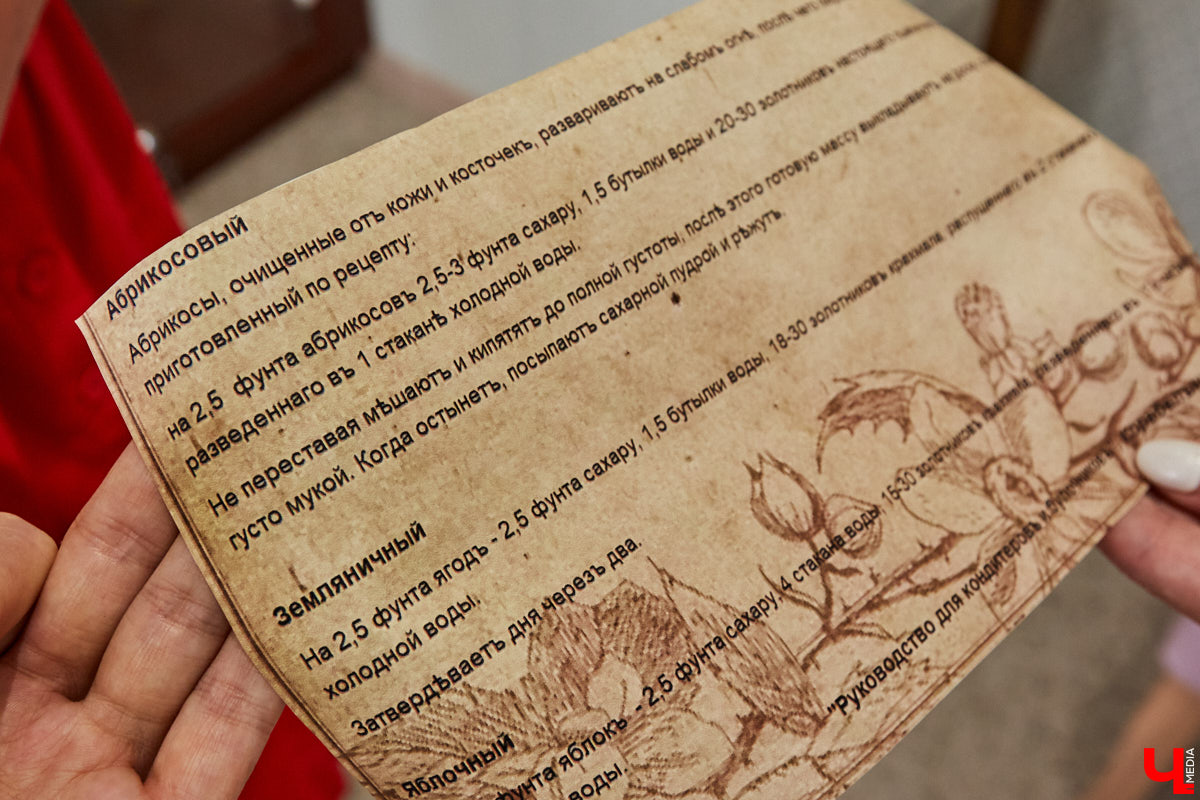 Абрикосовый
Абрикосы, очищенные отъ кожи и косточекъ, развариваютъ на слабомъ огнѣ, послѣ чего
приготовленный по рецепту:
на 2,5 фунта абрикосовъ 2,5-3 фунта сахару, 1,5 бутылки воды и 20-30 золотниковъ настоящаго
разведеннаго въ 1 стаканѣ холодной воды.
Не переставая мѣшаютъ и кипятятъ до полной густоты, послѣ этого готовую массу выкладываютъ на
густо мукой. Когда остынетъ, посыпаютъ сахарной пудрой и рѣжутъ.
Земляничный
На 2,5 фунта ягодъ - 2,5 фунта сахару, 1,5 бутылки воды, 18-30 золотниковъ крахмала, распущеннаго въ 2
холодной воды.
Затвердѣваетъ дня черезъ два.
Яблочный
фунта яблокъ - 2,5 фунта сахару, 4 стакана воды, 15-30 золотниковъ крахмала, разведеннаго въ
воды.
"Руководство для кондитеровъ
Ч MEDIA